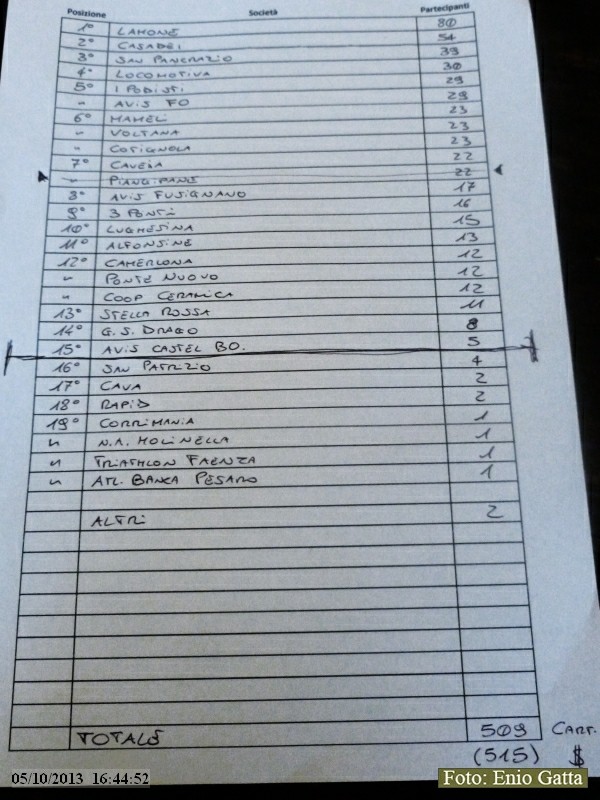 Posizione Società Partecipanti
1° LAMONE 80
2° CASADEI 54
3° SAN PANCRAZIO 39
4° LOCOMOTIVA 30
5° I PODISTI 29
" AVIS FO 29
6° MAMELI 23
" VOLTANA 23
" COTIGNOLA 23
7° CAVEJA 22
" PIANGIPANE 22
8° AVIS FUSIGNANO 17
9° 3 PONTI 16
10° LUGHESINA 15
11° ALFONSINE 13
12° CAMERLONA 12
" PONTE NUOVO 12
" COOP CERAMICA 12
13° STELLA ROSSA 11
14° G.S. DRAGO 8
15° AVIS CASTEL BO. 5
16° SAN PATRIZIO 4
17° CAVA 2
18° RAPID 2
19° CORRIMANIA 1
" N.A. MOLINELLA 1
" TRIATHLON FAENZA 1
" ATL. BANCA PESARO 1
ALTRI 2
TOTALE 509 CART.
(515) $
05/10/2013 16:44:52
Foto: Enio Gatta